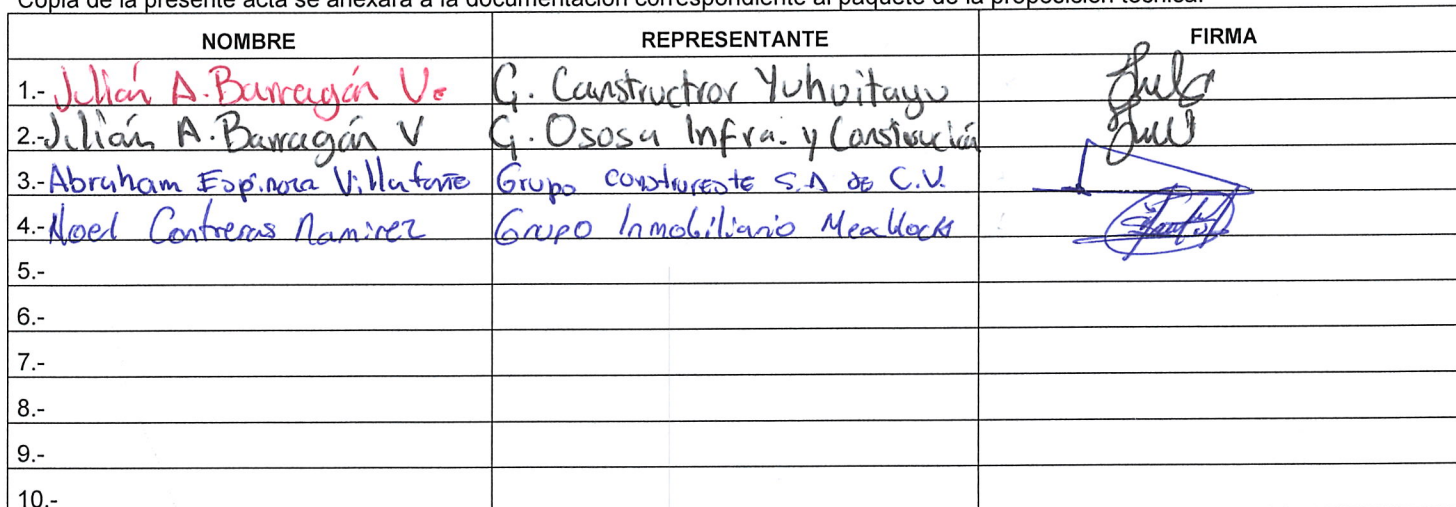 Copia de la presente acta se anexará a la documentación correspondiente al paquete de la proposición técnica.
NOMBRE REPRESENTANTE FIRMA
1.- Julián A. Barragán V. G. Constructror Yuhuitayu
2.- Julián A. Barragán V G. Ososa Infra. y Construcción
3.- Abraham Espinoza Villafañe Grupo construreste S.A de C.V.
4.- Noel Contreras Ramirez Grupo Inmobiliario
5.-
6.-
7.-
8.-
9.-
10.-